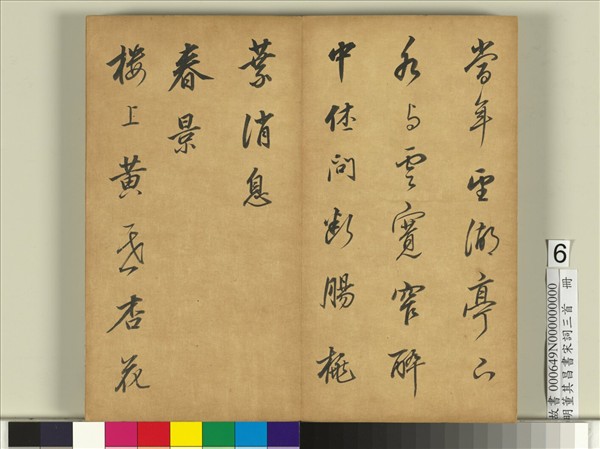 當年望湖亭下
水与雲寬窄醉
中休問斷腸桃
葉消息
春景
樓上黃昏杏花
6
故書000649N000000000
明董其昌書宋詞三首 冊